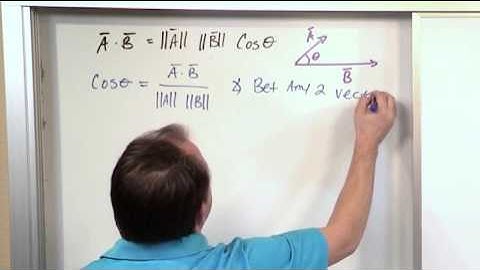 Ā · B̄ = ||Ā|| ||B̄|| Cosθ
Ā
θ
B̄
Cosθ = Ā · B̄ / ||A|| ||B|| Bet Any 2 vect